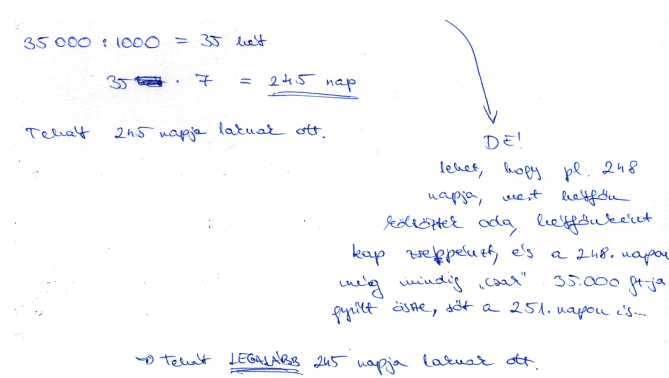 35 000 : 1000 = 35 hét
35 · 7 = 245 nap
Tehát 245 napja laknak ott.
DE!
lehet, hogy pl. 248
napja, mert hétfőn
költöztek oda, hétfőnként
kap zsebpénzt, és a 248. napon
még mindig „csak" 35.000 ft-ja
gyűlt össze, sőt a 251. napon is...
→ Tehát LEGALÁBB 245 napja laknak ott.